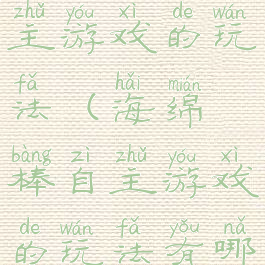 zhǔ yóu xì de wán
主游戏的玩
fǎ hǎi mián
法（海绵
bàng zì zhǔ yóu xì
棒自主游戏
de wán fǎ yǒu nǎ
的玩法有哪